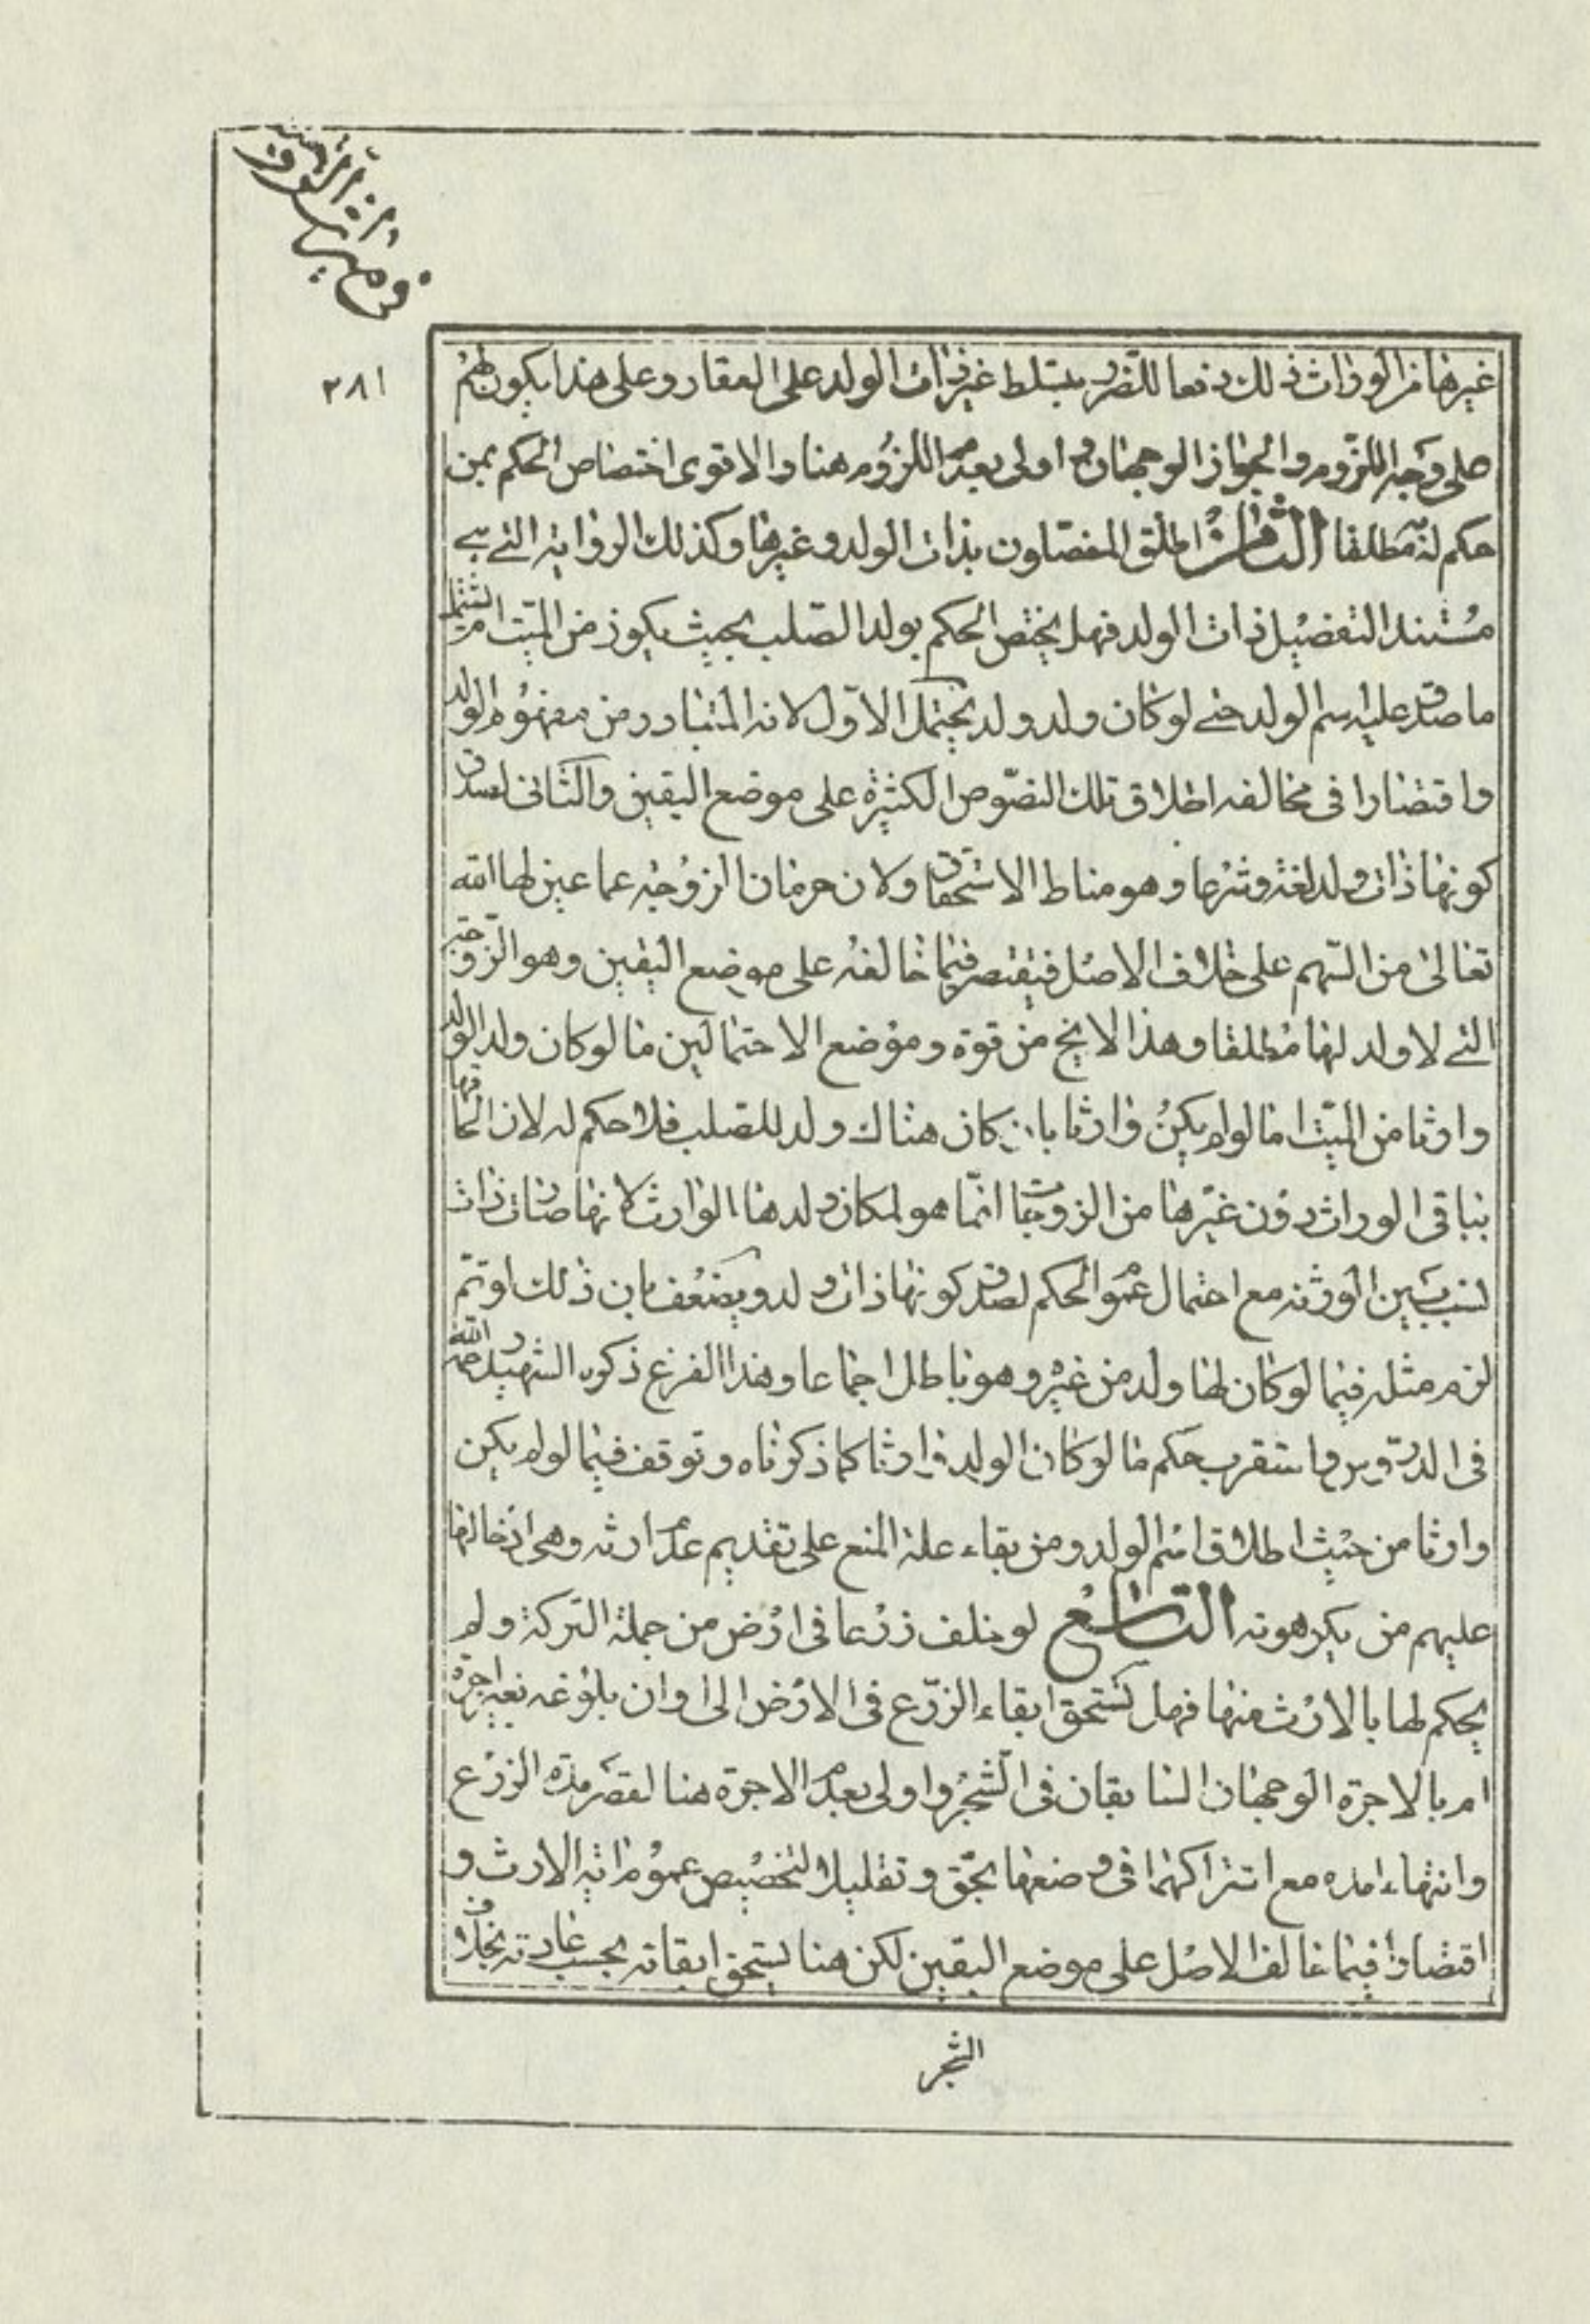 في ميراث الزوجة
٢٨١
غيرها من الوراث ذلك دفعا للضرر بتسلط غير ذات الولد على العقار وعلى هذا يكون لهم
على وجه اللزوم والجواز الوجهان واولى بعدم اللزوم هنا والاقوى اختصاص الحكم بمن
حكم له مطلقا الثامن اطلق المفصلون بذات الولد وغيرها وكذلك الرواية التي هي
مستند التفصيل ذات الولد فهل يختص الحكم بولد الصلب بحيث يكون من الميت ام يشمل
ما صدق عليه اسم الولد حتى لو كان ولد ولد يحتمل الاول لانه المتبادر من مفهوم الولد
واقتصارا في مخالفه اطلاق تلك النصوص الكثيرة على موضع اليقين والثاني لصدق
كونها ذات ولد لغة وشرعا وهو مناط الاستحقاق ولان حرمان الزوجه عما عين لها الله
تعالى من السهم على خلاف الاصل فيقتصر فيما خالفه على موضع اليقين وهو الزوجة
التي لا ولد لها مطلقا وهذا لا يخ من قوة وموضع الاحتمالين ما لو كان ولد الولد
وارثا من الميت اما لو لم يكن وارثا بان كان هناك ولد للصلب فلا حكم له لان الحاقها
بباقي الوراث دون غيرها من الزوجات انما هو لمكان ولدها الوارث لانها صارت ذات
نسب بين الورثه مع احتمال عموم الحكم لصدق كونها ذات ولد ويضعف بان ذلك لو تم
لزم مثله فيما لو كان لها ولد من غيره وهو باطل اجماعا وهذا الفرع ذكره الشهيد رحمه الله
في الدروس واستقرب حكم ما لو كان الولد وارثا كما ذكرناه وتوقف فيما لو لم يكن
وارثا من حيث اطلاق اسم الولد ومن بقاء علة المنع على تقديم عدم ارثه وهي ادخالها
عليهم من يكرهونه التاسع لو خلف زرعا في ارض من جملة التركة ولم
يحكم لها بالارث منها فهل تستحق ابقاء الزرع في الارض الى اوان بلوغه بغير اجرة
ام بالاجرة الوجهان السابقان في الشجر واولى بعدم الاجرة هنا لقصر مدة الزرع
وانتهاء امده مع اشتراكهما في وضعها بحق وتقليلا لتخصيص عموم اية الارث و
اقتصارا فيما خالف الاصل على موضع اليقين لكن هنا يستحق ابقائه بحسب عادته بخلاف
الشجر